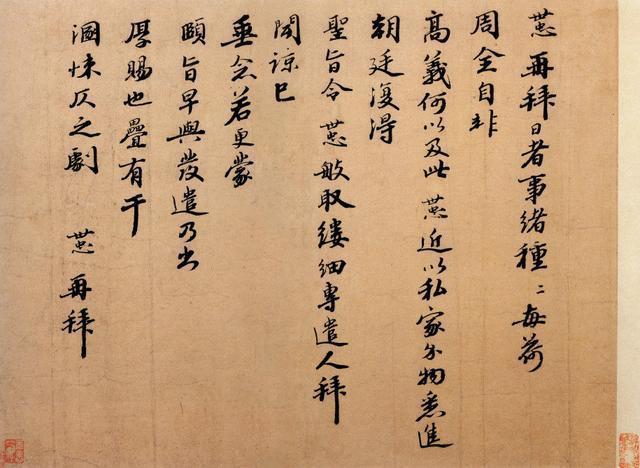 再拜日者事緒種〻每荷
周全自非
高義何以及此 近以私家分物悉進
朝廷復得
聖旨令 般取縷細專遣人拜
聞諒已
垂念若更蒙
頤旨早與發遣乃出
厚賜也疊有干
溷悚仄之劇 再拜